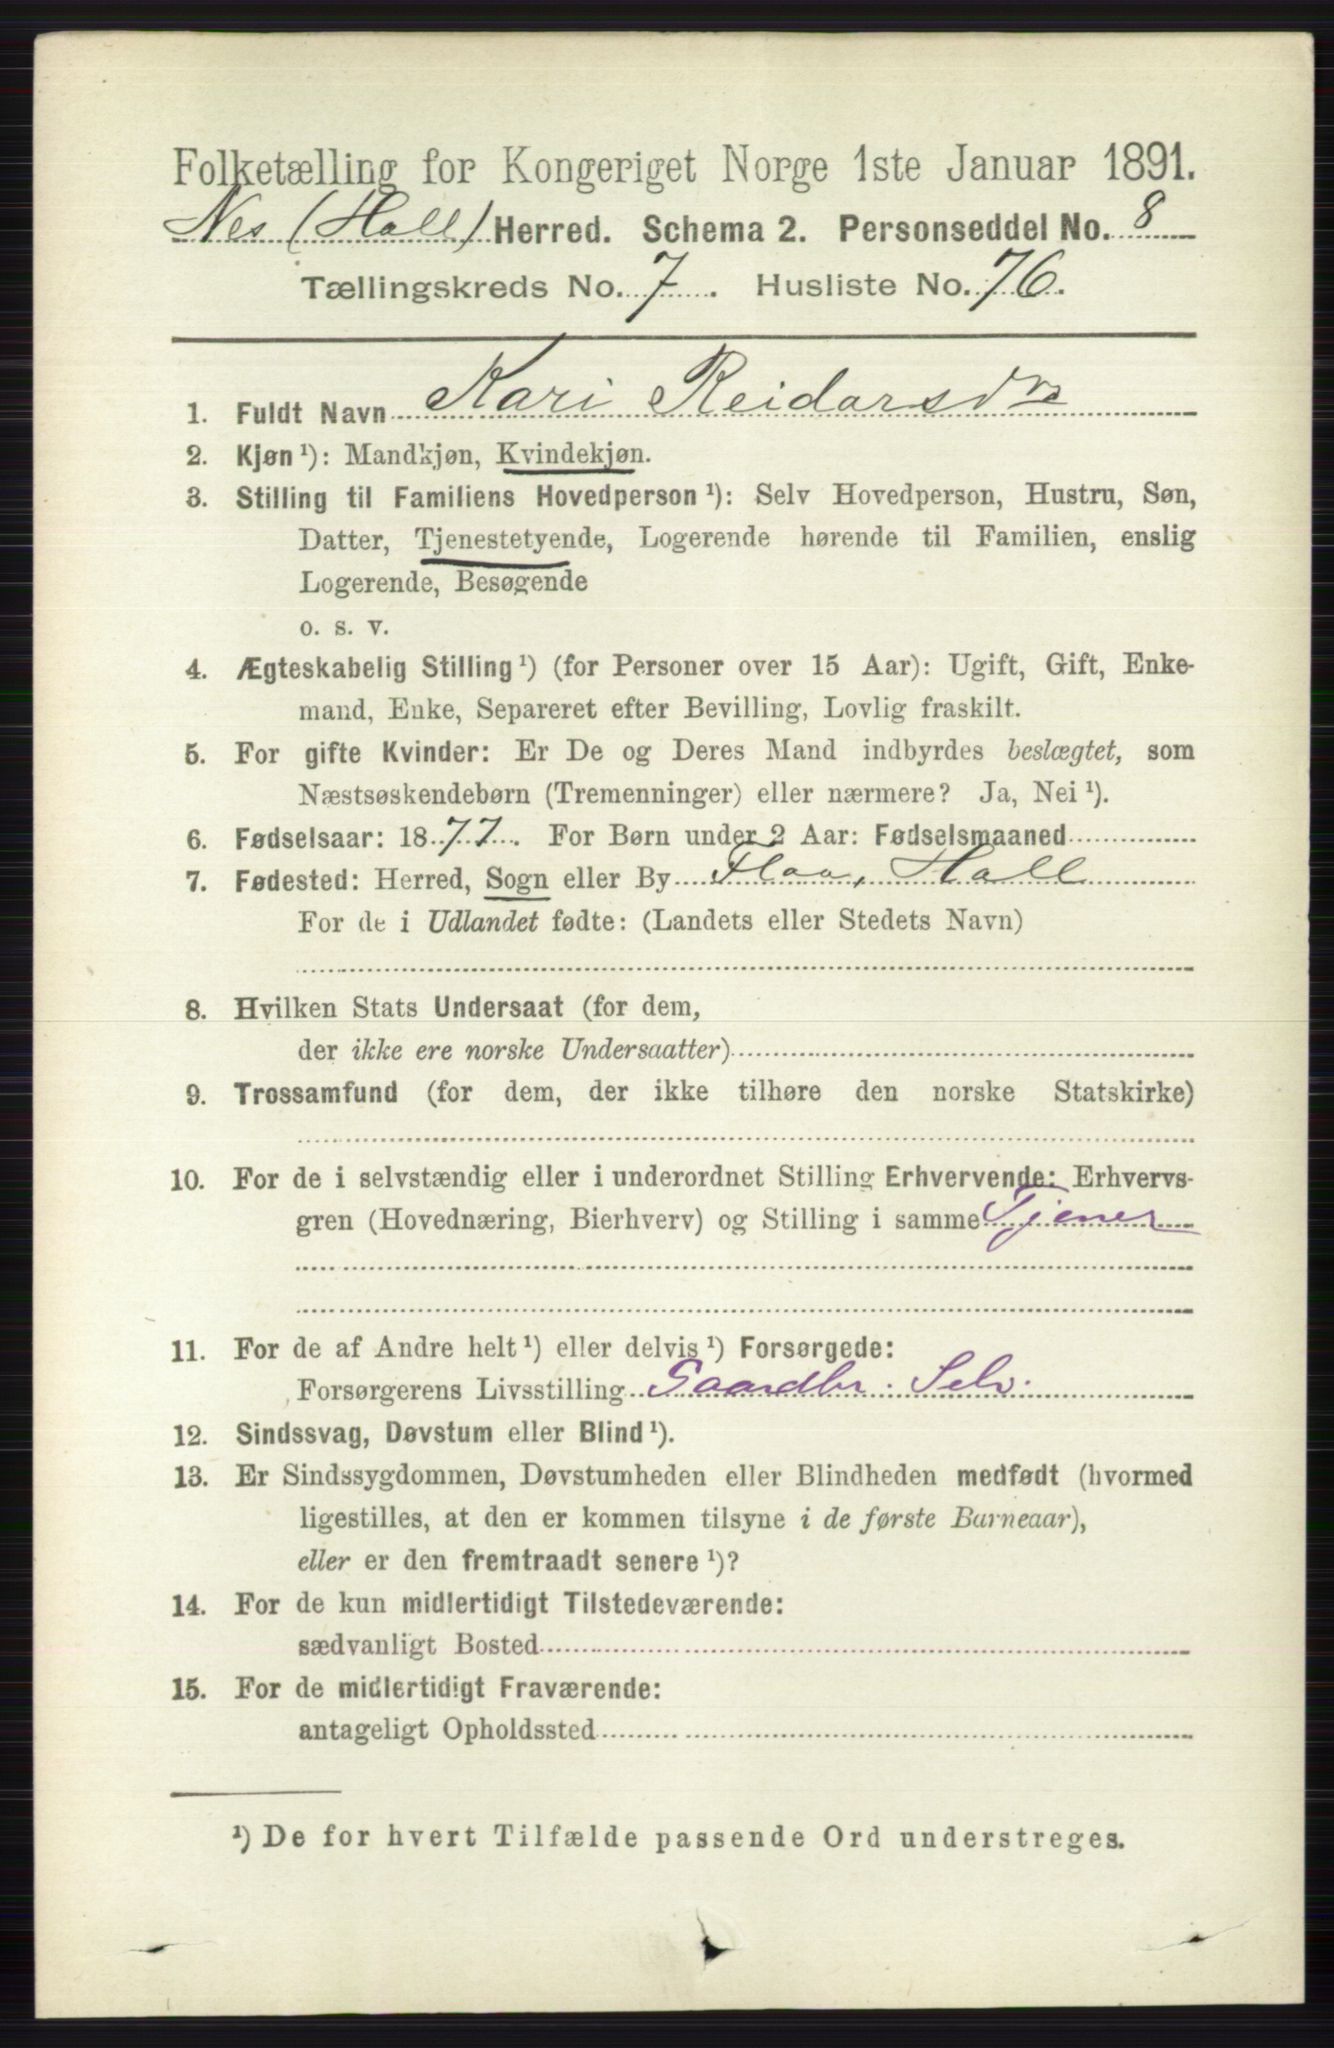 Folketælling for Kongeriget Norge 1ste Januar 1891.
Nes (Hall) Herred. Schema 2. Personseddel No. 8
Tællingskreds No. 7. Husliste No. 76.
1. Fuldt Navn Kari Reidarsdtr
2. Kjøn ¹): Mandkjøn, Kvindekjøn.
3. Stilling til Familiens Hovedperson ¹): Selv Hovedperson, Hustru, Søn,
Datter, Tjenestetyende, Logerende hørende til Familien, enslig
Logerende, Besøgende
o. s. v.
4. Ægteskabelig Stilling ¹) (for Personer over 15 Aar): Ugift, Gift, Enke-
mand, Enke, Separeret efter Bevilling, Lovlig fraskilt.
5. For gifte Kvinder: Er De og Deres Mand indbyrdes beslægtet, som
Næstsøskendebørn (Tremenninger) eller nærmere? Ja, Nei ¹).
6. Fødselsaar: 1877. For Børn under 2 Aar: Fødselsmaaned
7. Fødested: Herred, Sogn eller By Flaa, Hall
For de i Udlandet fødte: (Landets eller Stedets Navn)
8. Hvilken Stats Undersaat (for dem,
der ikke ere norske Undersaatter)
9. Trossamfund (for dem, der ikke tilhøre den norske Statskirke)
10. For de i selvstændig eller i underordnet Stilling Erhvervende: Erhvervs-
gren (Hovednæring, Bierhverv) og Stilling i samme Tjener
11. For de af Andre helt ¹) eller delvis ¹) Forsørgede:
Forsørgerens Livsstilling Gaardbr. Selv.
12. Sindssvag, Døvstum eller Blind ¹).
13. Er Sindssygdommen, Døvstumheden eller Blindheden medfødt (hvormed
ligestilles, at den er kommen tilsyne i de første Barneaar),
eller er den fremtraadt senere ¹)?
14. For de kun midlertidigt Tilstedeværende:
sædvanligt Bosted
15. For de midlertidigt Fraværende:
antageligt Opholdssted
¹) De for hvert Tilfælde passende Ord understreges.